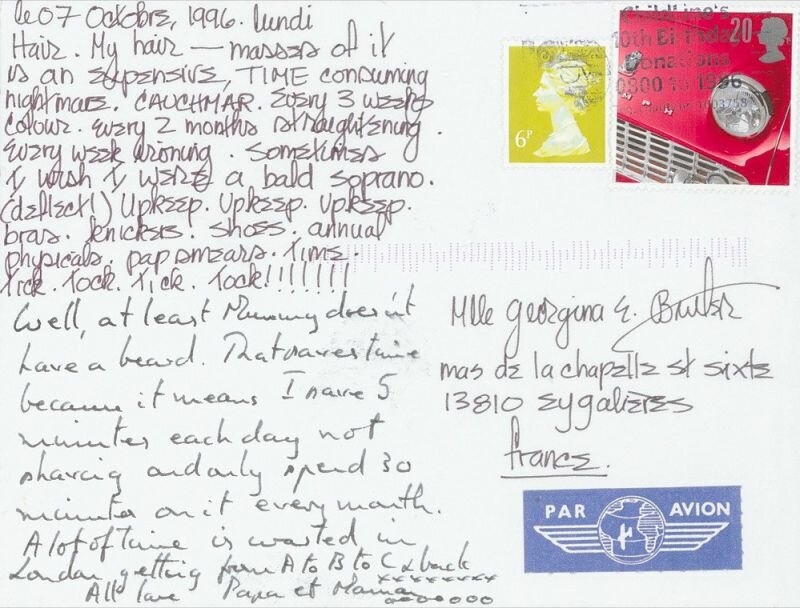 le 07 Octobre, 1996. lundi
Hair. My hair — masses of it
is an expensive, TIME consuming
nightmare. CAUCHMAR. Every 3 weeks
colour. every 2 months straightening.
Every week ironing. sometimes
I wish I were a bald soprano.
(deflect!) Upkeep. Upkeep. Upkeep.
bras. knickers. shoes. annual
physicals. pap smears. Time.
Tick. Tock. Tick. Tock!!!!!!!
Well, at least Mummy doesn't
have a beard. That saves time
because it means I have 5
minutes each day not
shaving and only spend 30
minutes on it every month.
A lot of time is wasted in
London getting from A to B to C & back
All love Papa et Maman
xxxxxxxx
ooooooo
6P
20
ChildLine's
10th Birthday
Donations
0800 10 1996
Mlle georgina E.
mas de la chapelle st sixte
13810 Eygalieres
france.
PAR AVION